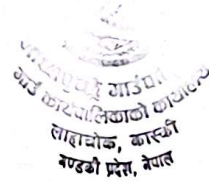 माछापुच्छ्रे गाउँपालिका
गाउँ कार्यपालिकाको कार्यालय
लाहाचोक, कास्की
गण्डकी प्रदेश, नेपाल